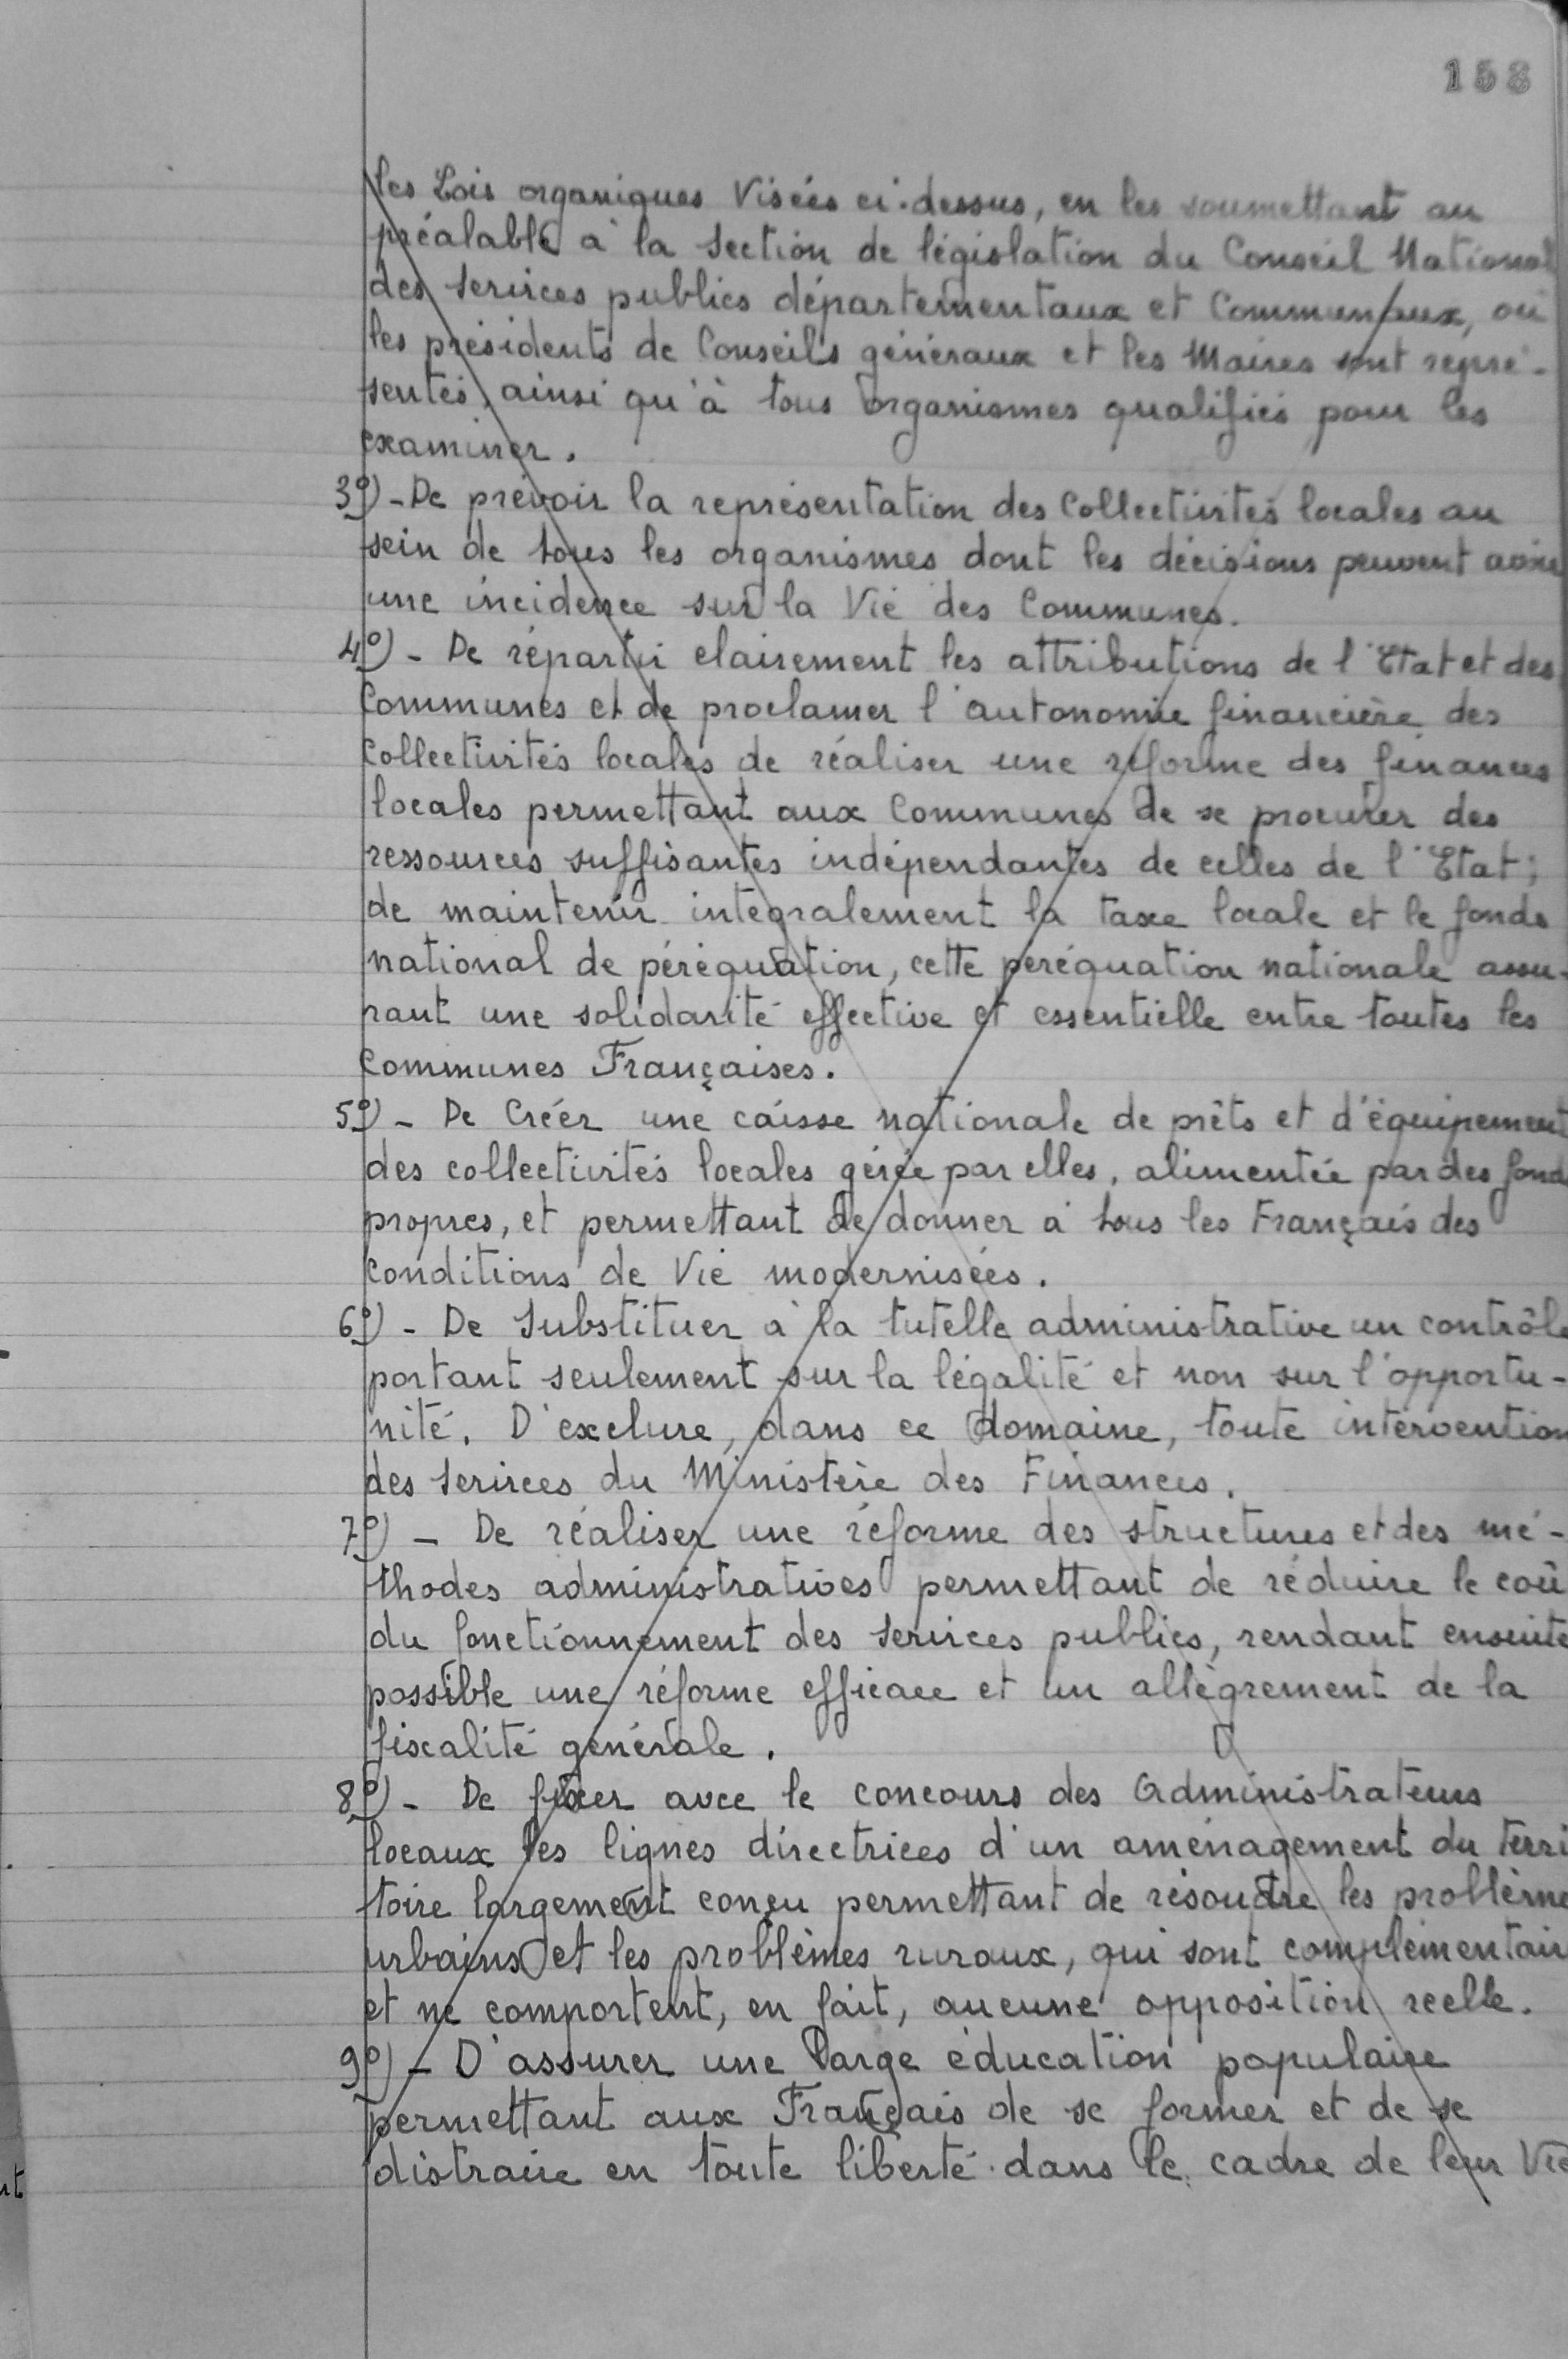 158
les Lois organiques Visées ci-dessus, en les soumettant au
préalable à la section de législation du Conseil National
des services publics départementaux et Communaux, où
les présidents de Conseils généraux et les Maires sont repré-
sentés, ainsi qu'à tous organismes qualifiés pour les
examiner.
3º)- De prévoir la représentation des Collectivités locales au
sein de tous les organismes dont les décisions peuvent avoir
une incidence sur la Vie des Communes.
4º)- De répartir clairement les attributions de l'Etat et des
Communes et de proclamer l'autonomie financière des
Collectivités locales de réaliser une réforme des finances
locales permettant aux Communes de se procurer des
ressources suffisantes indépendantes de celles de l'Etat;
de maintenir intégralement la taxe locale et le fonds
national de péréquation, cette péréquation nationale assu-
rant une solidarité effective et essentielle entre toutes les
Communes Françaises.
5º)- De Créer une caisse nationale de prêts et d'équipement
des collectivités locales gérée par elles, alimentée par des fond
propres, et permettant de donner à tous les Français des
Conditions de Vie modernisées.
6º)- De Substituer à la tutelle administrative un contrôle
portant seulement sur la légalité et non sur l'opportu-
nité. D'exclure, dans ce domaine, toute intervention
des services du Ministère des Finances.
7º)- De réaliser une réforme des structures et des mé-
thodes administratives permettant de réduire le coû
du fonctionnement des services publics, rendant ensuite
possible une réforme efficace et un allègrement de la
fiscalité générale.
8º)- De fixer avec le concours des Administrateurs
locaux les lignes directrices d'un aménagement du terri
toire largement conçu permettant de résoudre les problème
urbains et les problèmes ruraux, qui sont complémentair
et ne comportent, en fait, aucune opposition réelle.
9º)- D'assurer une large éducation populaire
permettant aux Français de se former et de se
distraire en toute liberté dans le cadre de leur Vie
nt